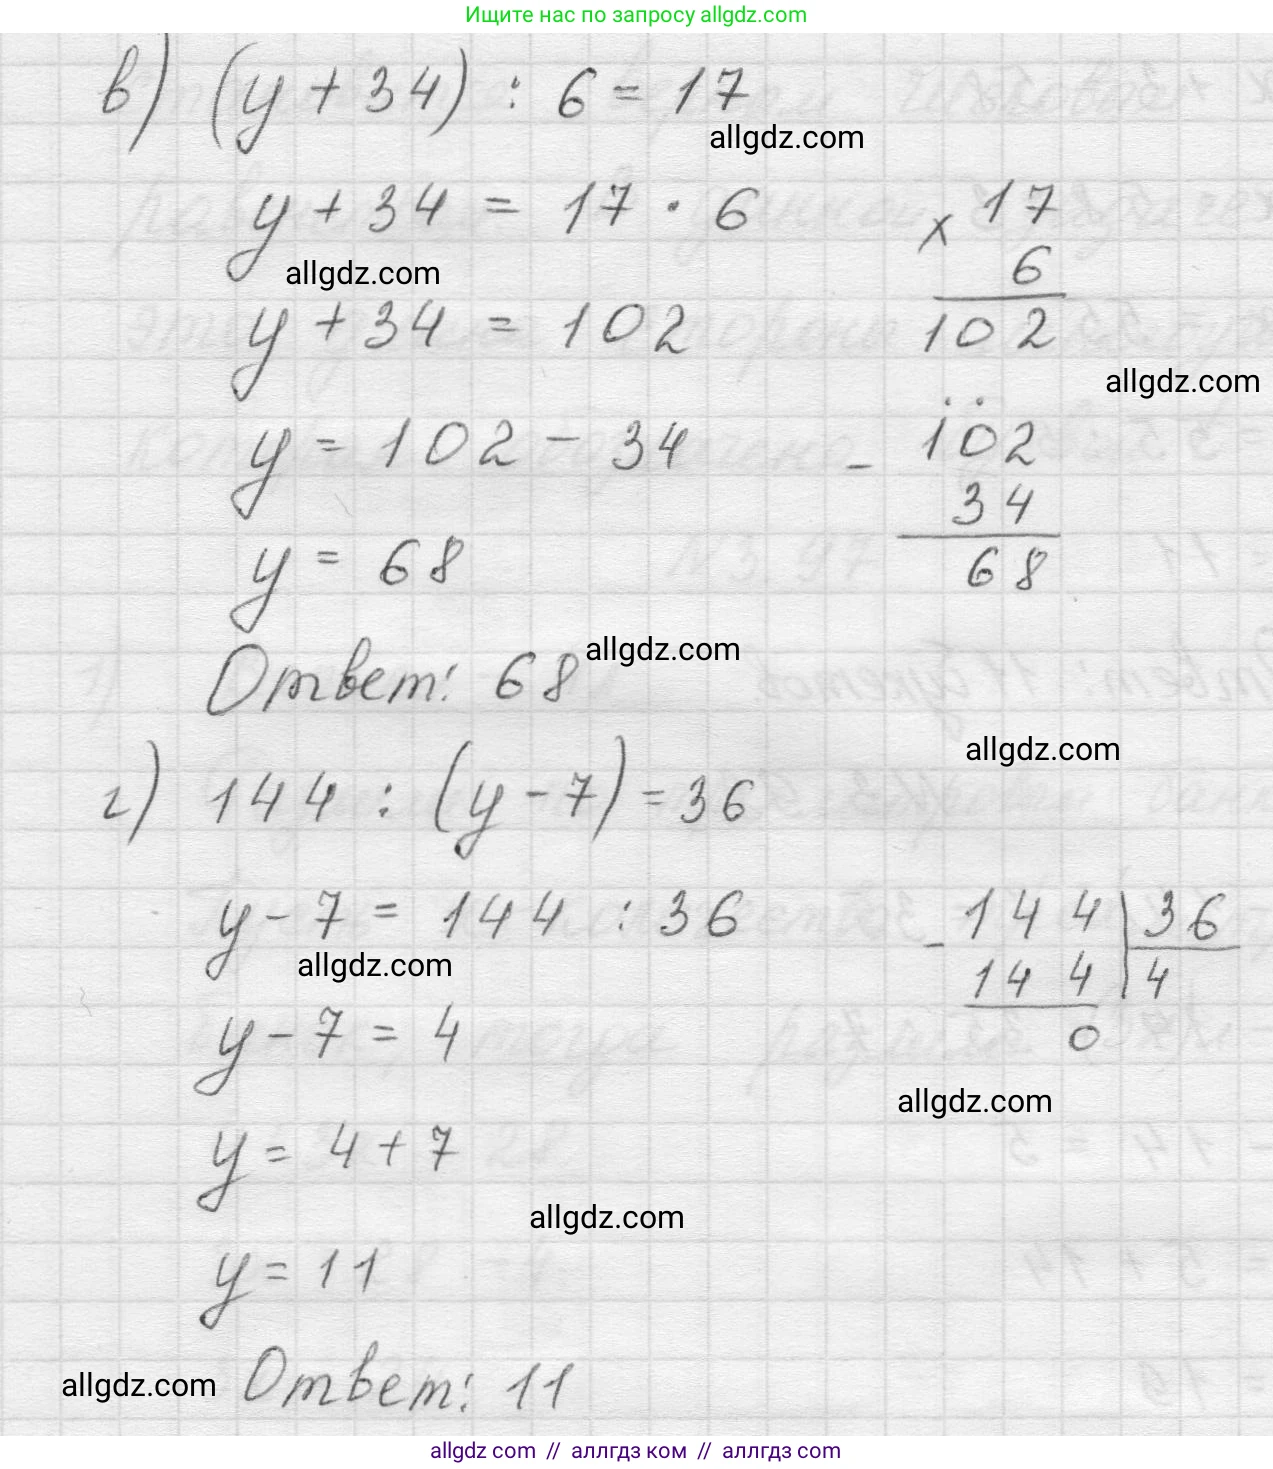 Ищите нас по запросу allgdz.com
в) (у + 34) : 6 = 17
allgdz.com
у + 34 = 17 · 6
× 17
6
102
allgdz.com
у + 34 = 102
allgdz.com
у = 102 - 34
- 102
34
68
у = 68
Ответ: 68
allgdz.com
allgdz.com
г) 144 : (у - 7) = 36
у - 7 = 144 : 36
- 144 | 36
144 | 4
0
allgdz.com
у - 7 = 4
allgdz.com
у = 4 + 7
allgdz.com
у = 11
allgdz.com
Ответ: 11
allgdz.com // аллгдз ком // аллгдз com